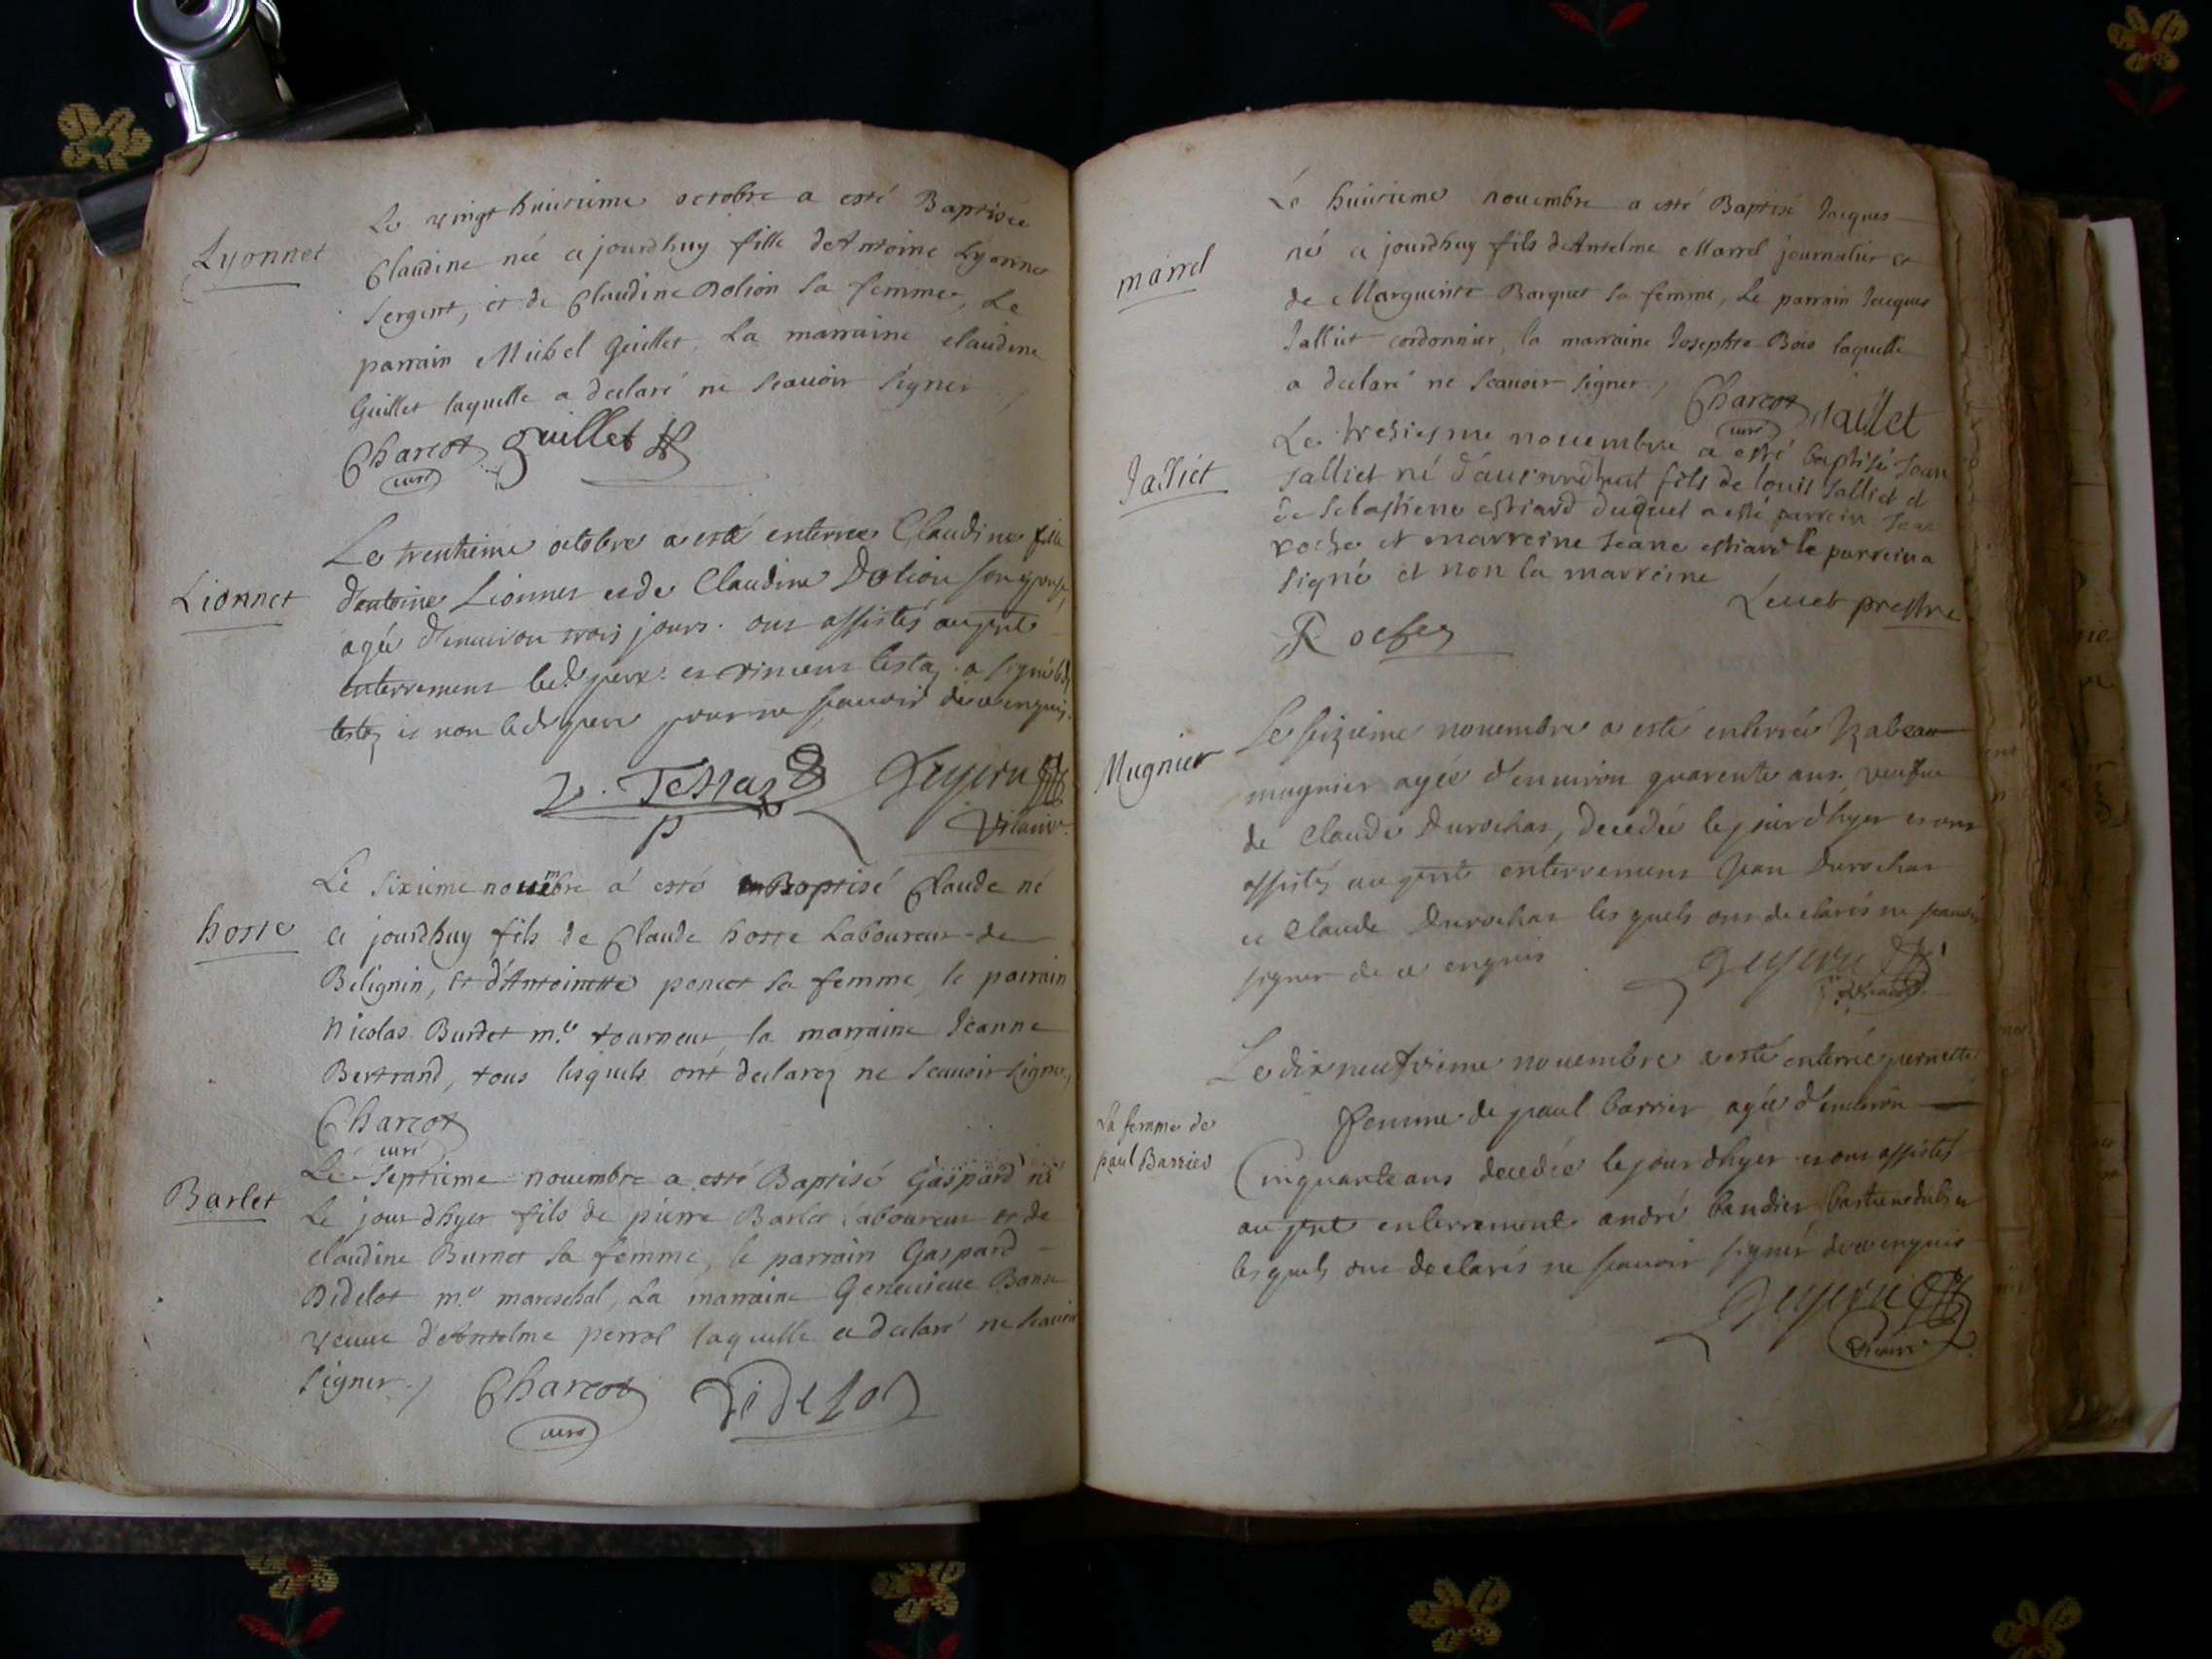 Lyonnet
Le vingt huictieme octobre a esté Baptisée
Claudine née ce jourdhuy fille d'Antoine Lyonnet
Sergent, et de Claudine Dolion sa femme, Le
parrain Michel Guillet, La marraine claudine
Guillet laquelle a declaré ne scauoir signer
Charcot guillet
curé
Lionnet
Le trentieme octobre a esté enterree Claudine fille
d'entoine Lionnet et de Claudine Dolion son epouse,
agée d'enuiron trois jours. ont assistés au pnt
enterrement led. pere et vincent testaz. a signé led.
testaz et non led. pere pour ne scauoir de ce enquis.
V. Testaz
Vicaire
horte
Le sixieme nouembre a esté Baptisé Claude né
ce jourdhuy fils de Claude horte Laboureur de
Belignin, et d'Antoinette poncet sa femme, le parrain
Nicolas Burdet m.e tourneur la marraine Jeanne
Bertrand, tous lesquels ont declarez ne scauoir signer,
Charcot
curé
Barlet
Le septieme nouembre a esté Baptisé Gaspard né
le jour dhyer fils de pierre Barlet laboureur et de
claudine Burnet sa femme, le parrain Gaspard
Didelot m.e mareschal, La marraine Geneuieue Bonne
veuue d'Antelme perrol laquelle a declaré ne scauoir
signer.
Charcot Didelot
curé
marrel
Le huictieme nouembre a esté Baptisé Jacques
né ce jourdhuy fils d'Antelme Marrel journalier et
de Marguerite Barquet sa femme, Le parrain Jacques
Jalliet cordonnier, la marraine Josephte Bois laquelle
a declaré ne scauoir signer.
Charcot jaillet
curé
Jalliet
Le tresiesme nouembre a esté baptisé Jean
Jalliet né fils de louis Jalliet et
de Sebastiene estiard duquel a esté parrein Jean
roche et marreine Jeane estiard le parrein a
signé et non la marreine
Leuet prestre
Roche
Mugnier
Le seizieme nouembre a esté enterrée Izabeau
mugnier agée d'enuiron quarente ans, veufue
de Claude Durochat, decedée le jour dhyer et ont
assistés au pnt enterrement Jean Durochat
et Claude Durochat les quels ont declarés ne scauoir
signer de ce enquis
Vicaire
La femme de
paul Barrier
Le dix neufvieme nouembre a esté enterrée pernette
femme de paul barrier, agée d'enuiron
Cinquante ans decedée le jour dhyer et ont assistés
au pnt enterrement andré baudier,
les quels ont declarés ne scauoir signer de ce enquis
Vicaire